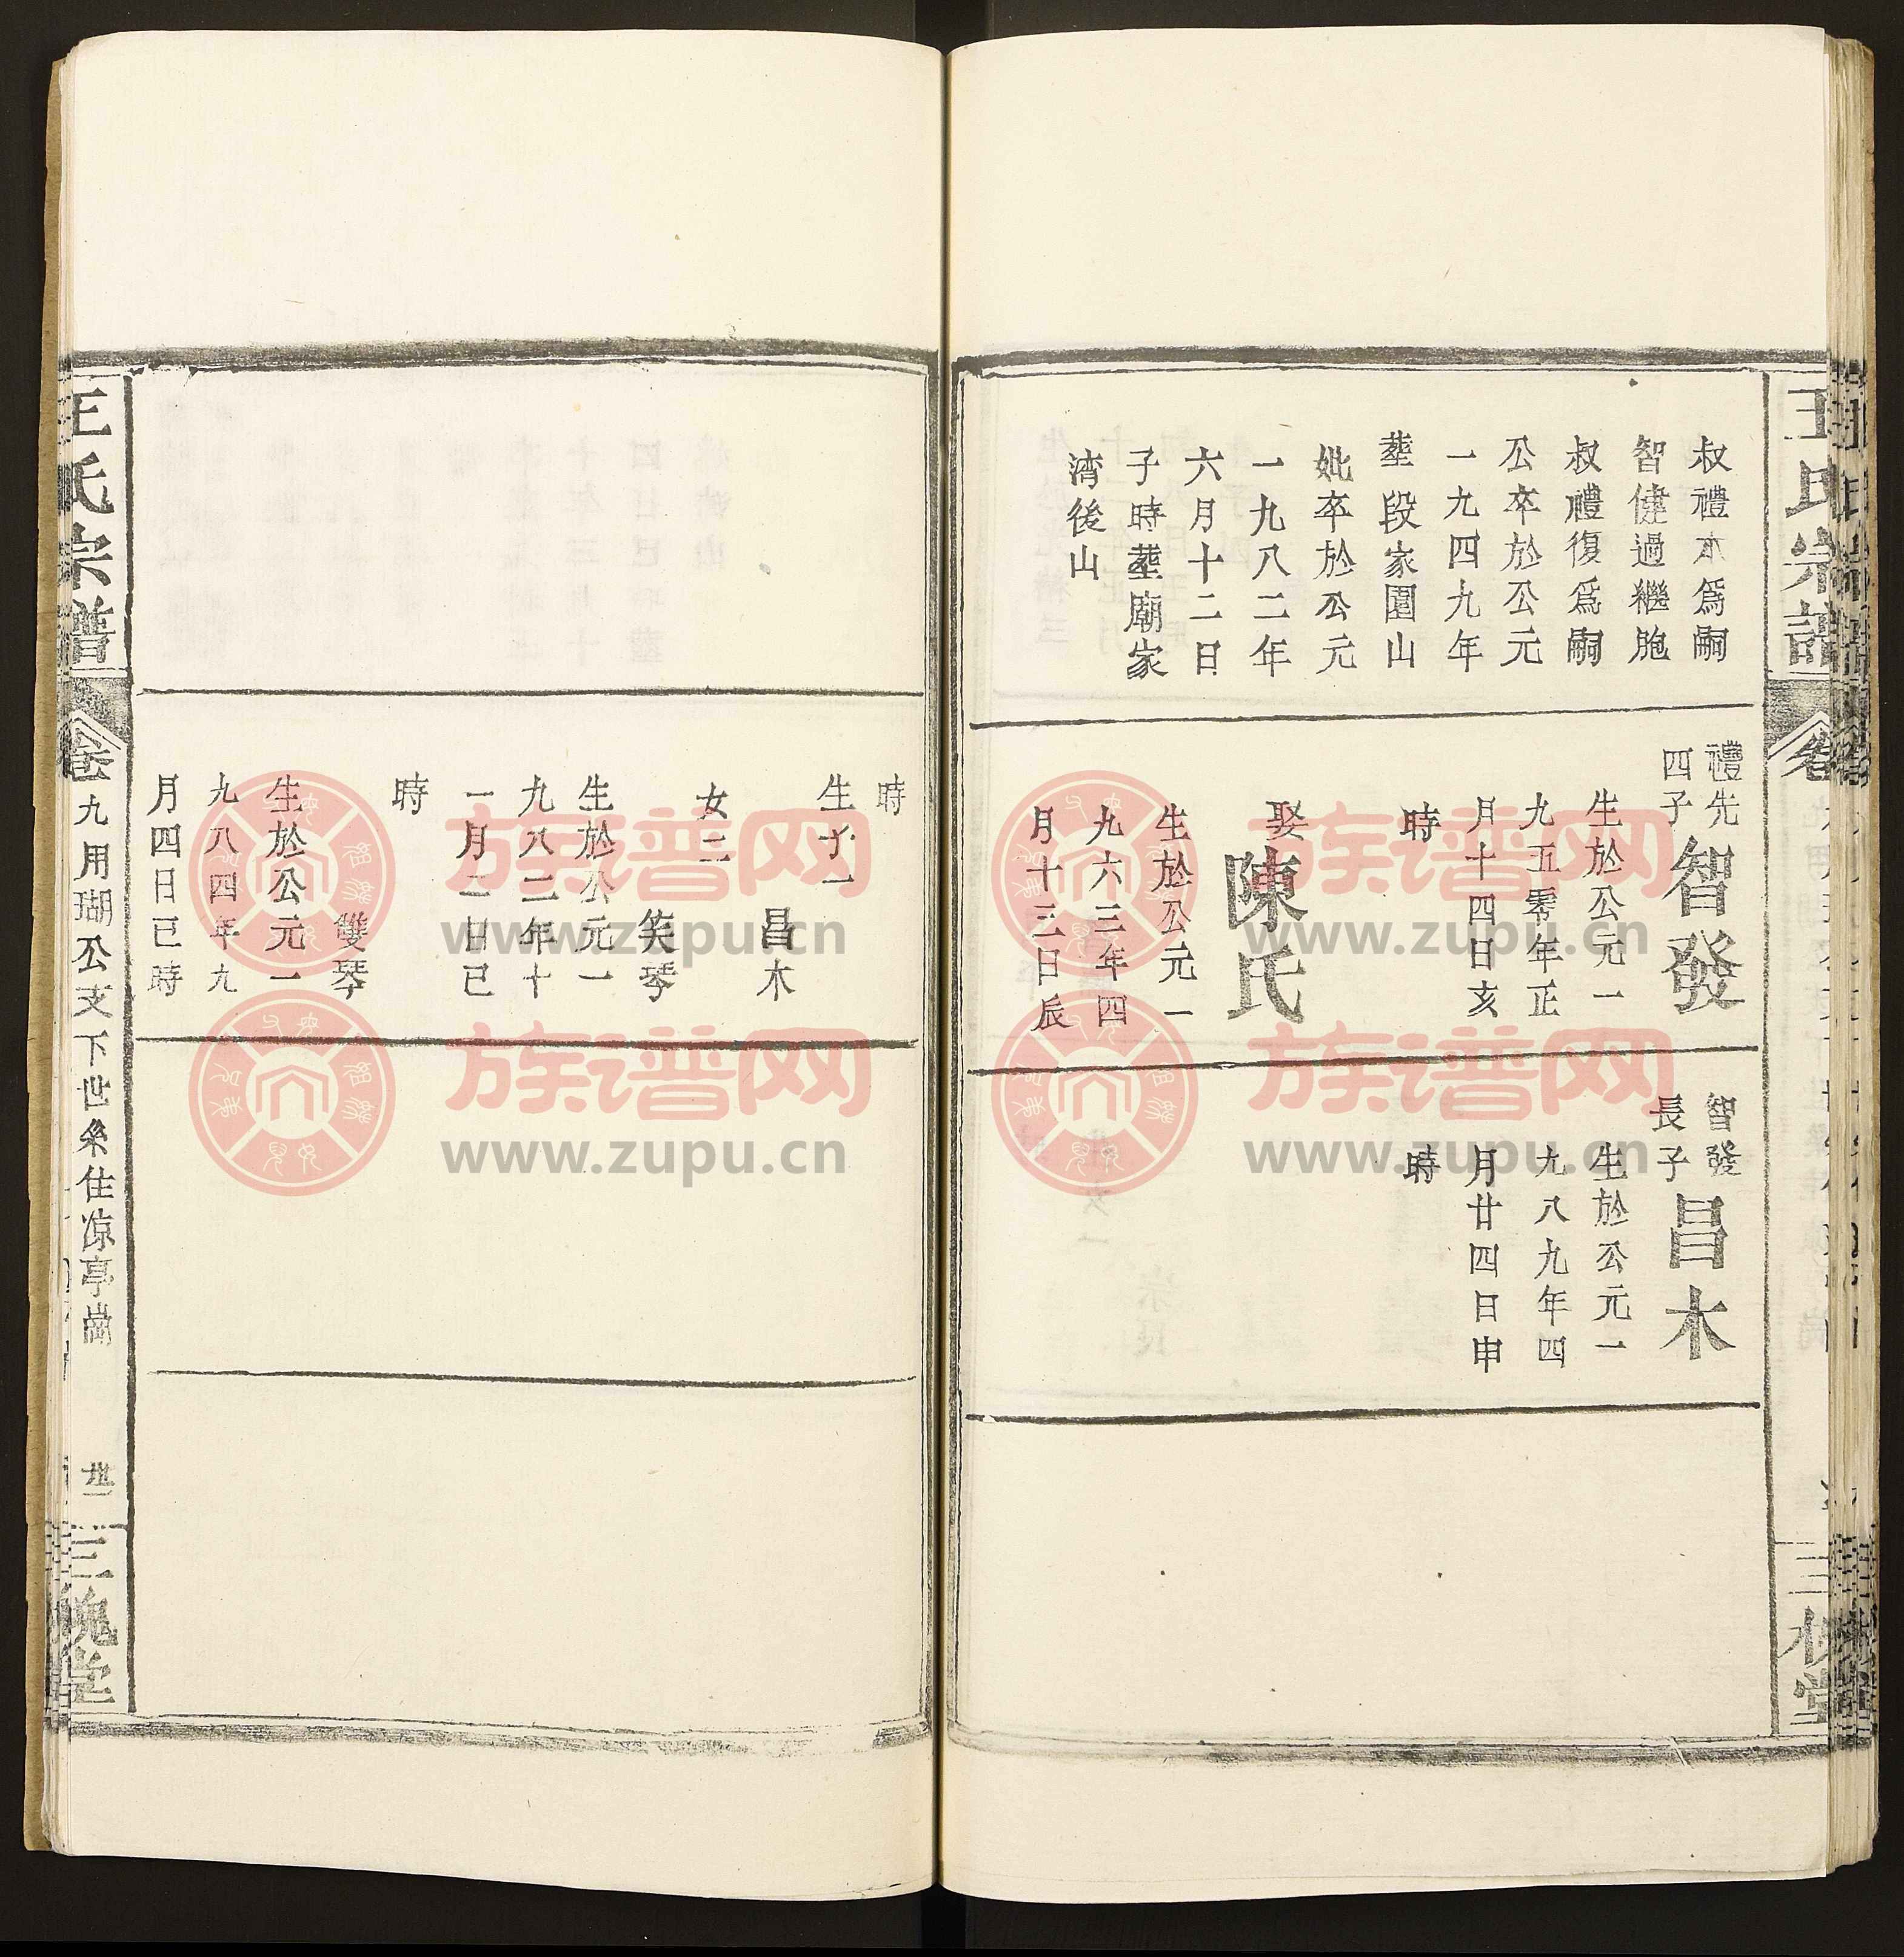 王氏宗譜
叔禮本爲嗣
智健過繼胞
叔禮復爲嗣
公卒於公元
一九四九年
塟段家園山
妣卒於公元
一九八二年
六月十二日
子時塟廟家
湾後山
禮先
四子
智發
生於公元一
九五零年正
月十四日亥
時
娶
陳氏
生於公元一
九六三年四
月十三日辰
智發
長子
昌木
生於公元一
九八九年四
月廿四日申
時
堂
時
生子一
昌木
女二
笑琴
生於公元一
九八二年十
一月二日巳
時
雙琴
生於公元一
九八四年九
月四日巳時
王氏宗譜
卷九用瑚公支下世系住凉亭崗
三槐堂
族谱网
www.zupu.cn
族谱网
www.zupu.cn
族谱网
www.zupu.cn
族谱网
www.zupu.cn